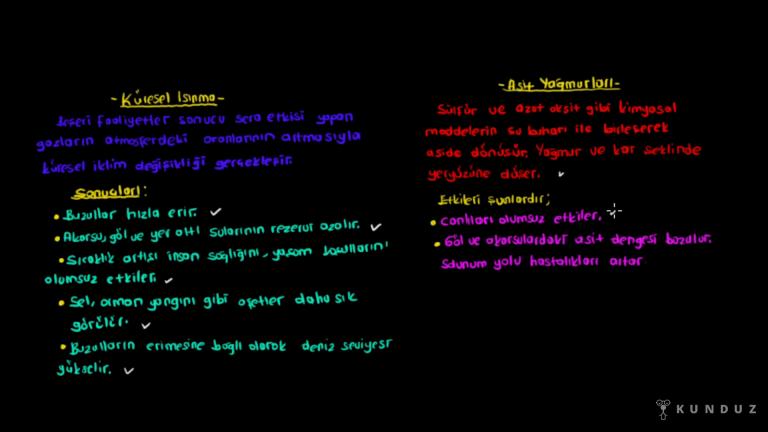 -Küresel Isınma-
Beşeri faaliyetler sonucu sera etkisi yapan
gazların atmosferdeki oranlarının artmasıyla
küresel iklim değişikliği gerçekleşir.
Sonuçları:
• Buzullar hızla erir. ✓
• Akarsu, göl ve yer altı sularının rezervi azalır. ✓
• Sıcaklık artışı insan sağlığını, yaşam koşullarını
olumsuz etkiler. ✓
• Sel, orman yangını gibi afetler daha sık
görülür. ✓
• Buzulların erimesine bağlı olarak deniz seviyesi
yükselir. ✓
-Asit Yağmurları-
Sülfür ve azot oksit gibi kimyasal
maddelerin su buharı ile birleşerek
aside dönüşür. Yağmur ve kar şeklinde
yeryüzüne düşer. ✓
Etkileri şunlardır;
• Canlıları olumsuz etkiler.
• Göl ve akarsulardaki asit dengesi bozulur.
Solunum yolu hastalıkları artar
KUNDUZ